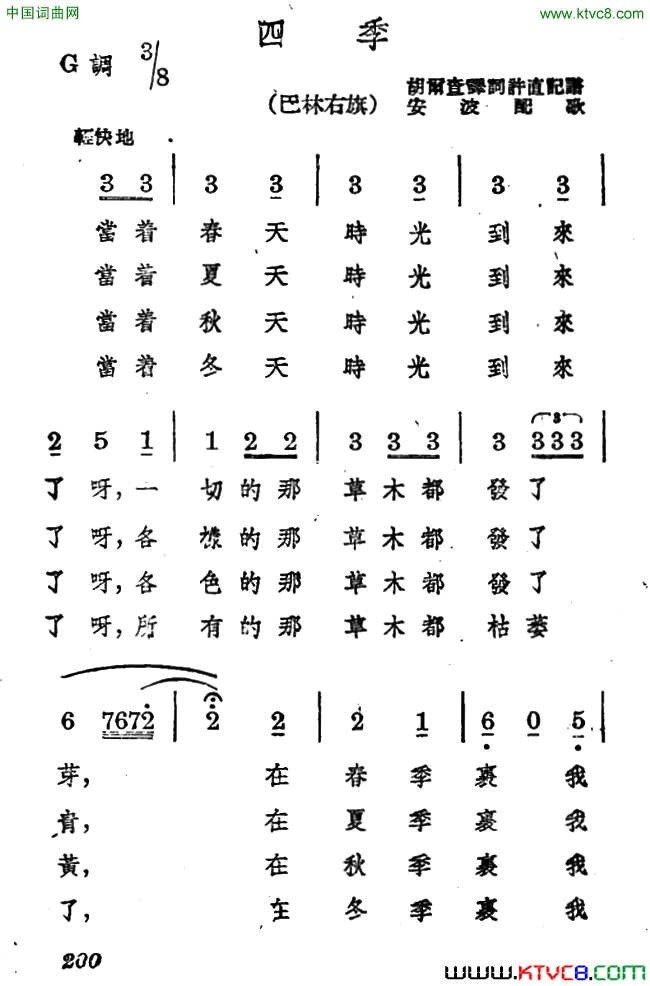 中国词曲网
www.ktvc8.com
四 季
G 調 3/8
胡爾查譯詞 許直記譜
(巴林右旗) 安 波 配 歌
輕快地
3 3 | 3 3 | 3 3 | 3 3
當着 春 天 時 光 到 來
當着 夏 天 時 光 到 來
當着 秋 天 時 光 到 來
當着 冬 天 時 光 到 來
2 5 1 | 1 2 2 | 3 3 3 | 3 3 3 3
了 呀, 一 切 的 那 草 木 都 發 了
了 呀, 各 樣 的 那 草 木 都 發 了
了 呀, 各 色 的 那 草 木 都 發 了
了 呀, 所 有 的 那 草 木 都 枯 萎
6 7672 | 2 2 | 2 1 | 6 0 5
芽, 在 春 季 裏 我
青, 在 夏 季 裏 我
黃, 在 秋 季 裏 我
了, 在 冬 季 裏 我
200
www.KTVC8.com